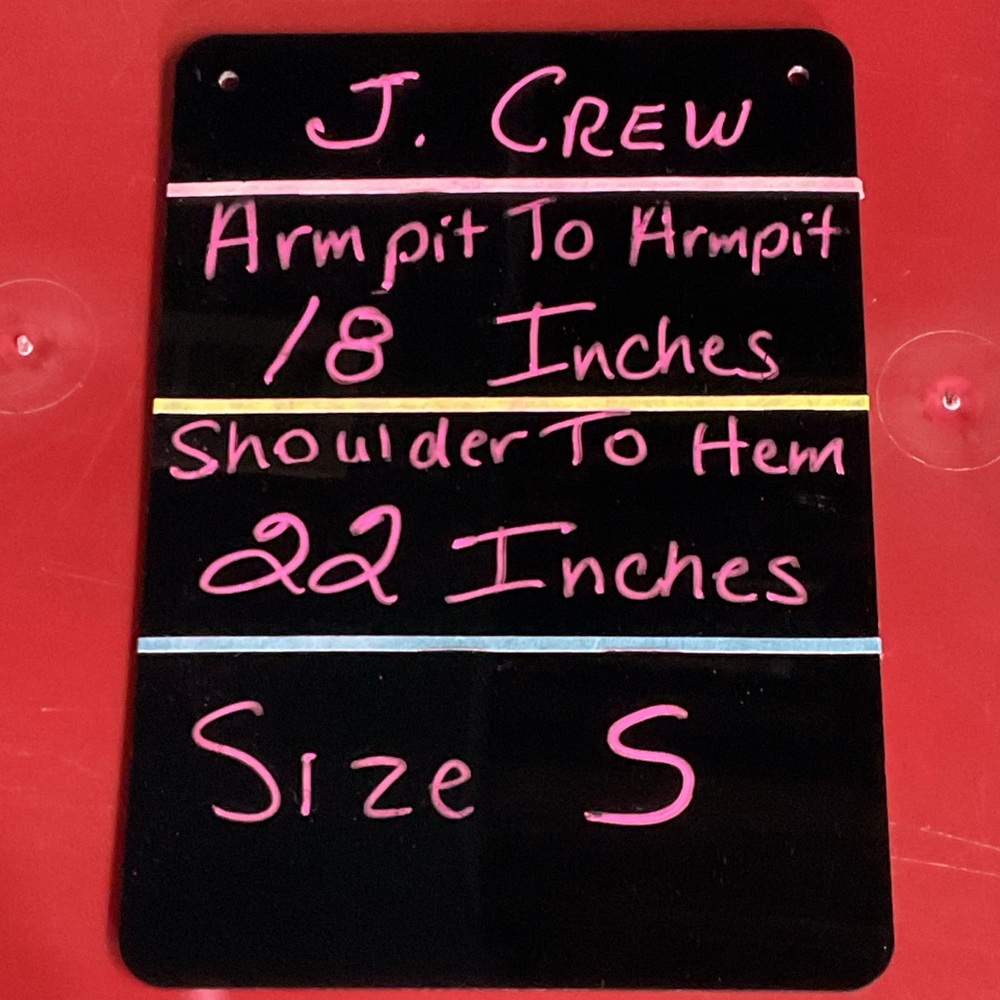 J. CREW
Armpit To Armpit
18 Inches
Shoulder To Hem
22 Inches
Size S